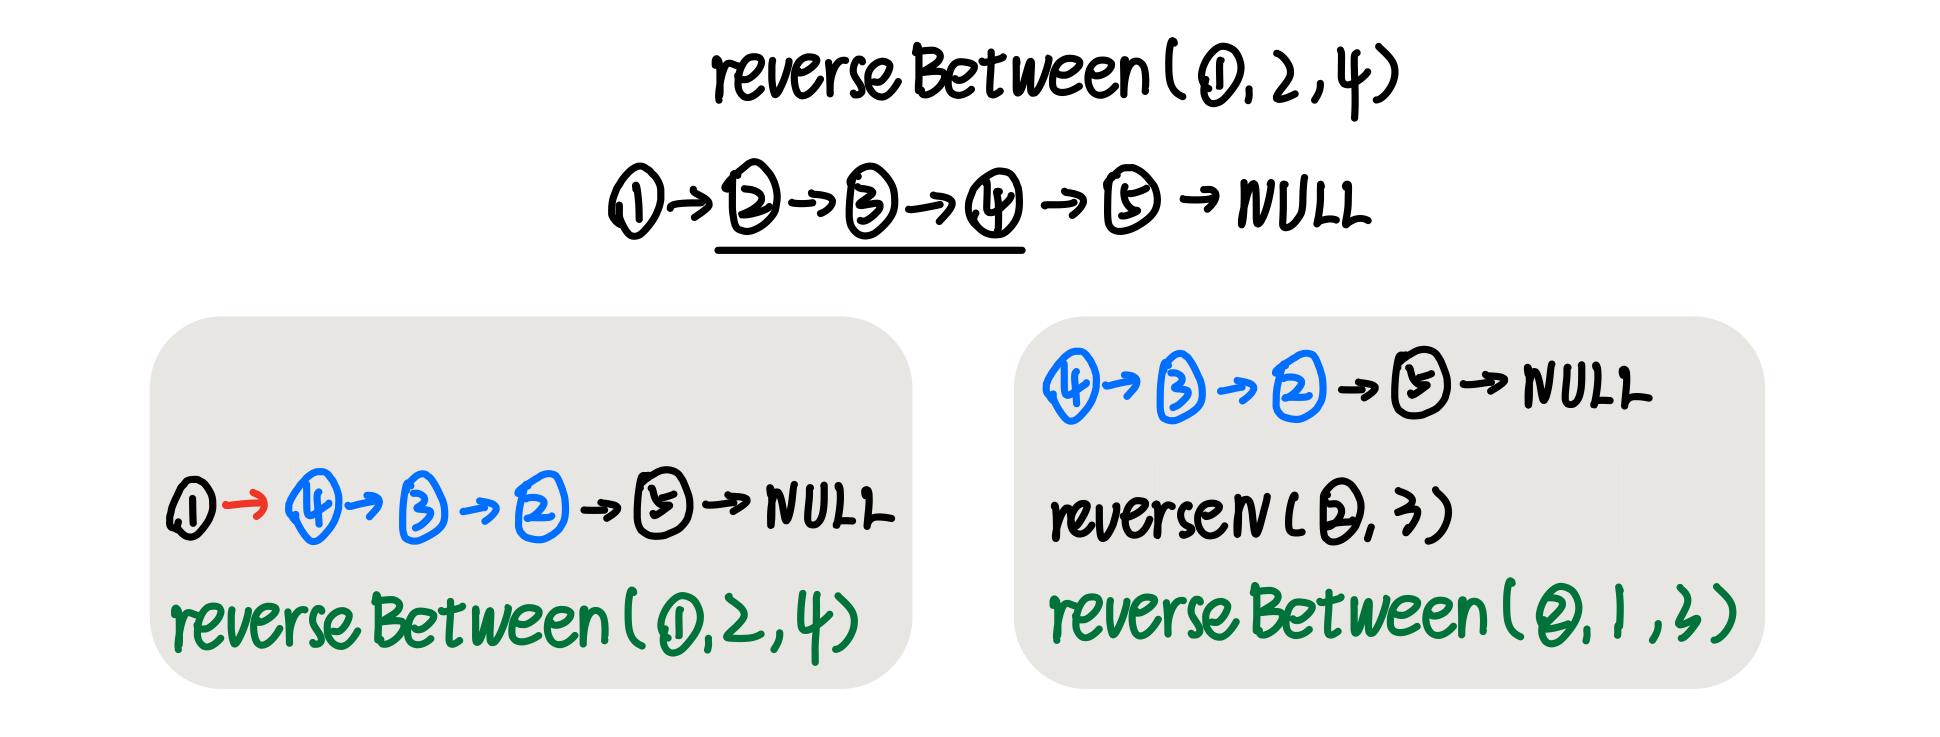 reverseBetween(①,2,4)
①→②→③→④→⑤→NULL
①→④→③→②→⑤→NULL
reverseBetween(①,2,4)
④→③→②→⑤→NULL
reverseN(②,3)
reverseBetween(②,1,3)